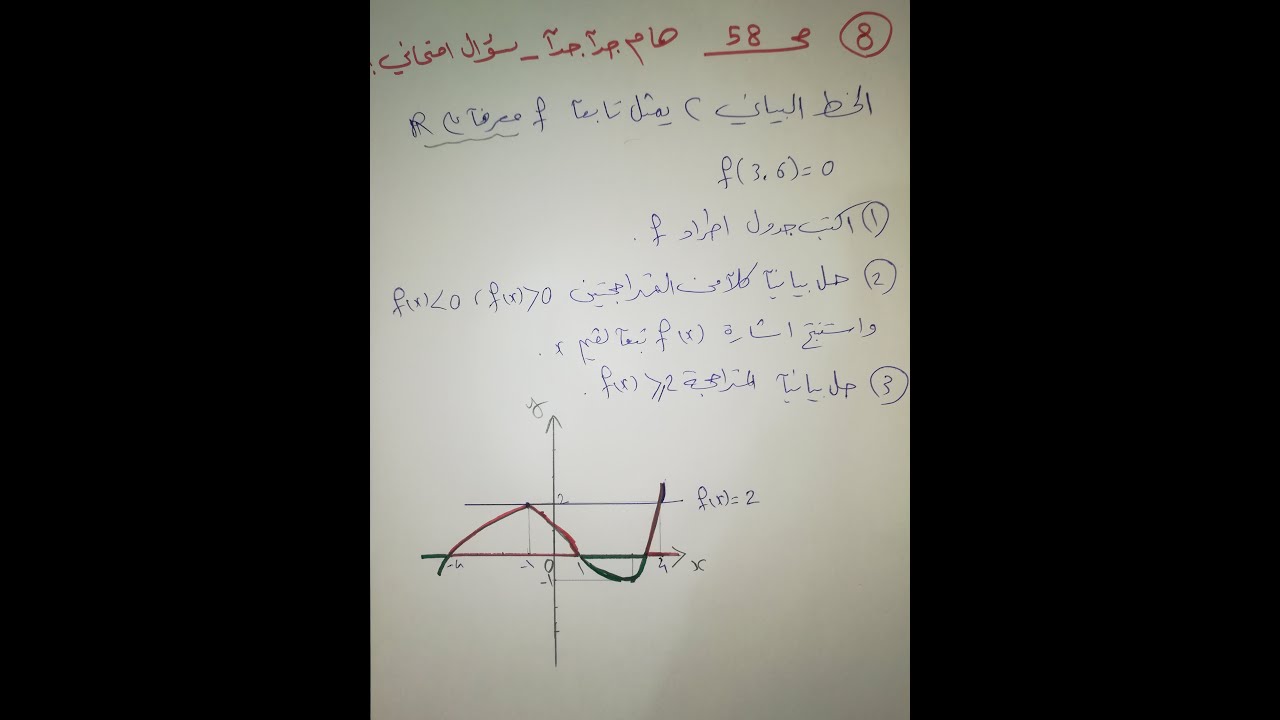 8 ص 58 هام جداً جداً - سؤال امتحاني :
الخط البياني C يمثل تابعاً f معرفاً على R
f(3.6)=0
① اكتب جدول اطراد f .
② حل بيانياً كلاً من المتراجحتين f(x)>0 ، f(x)<0
واستنتج اشارة f(x) تبعاً لقيم x .
③ حل بيانياً المتراجحة f(x)⩾2 .
y
2
f(x)=2
-4 -1 0 1 4 x
-1